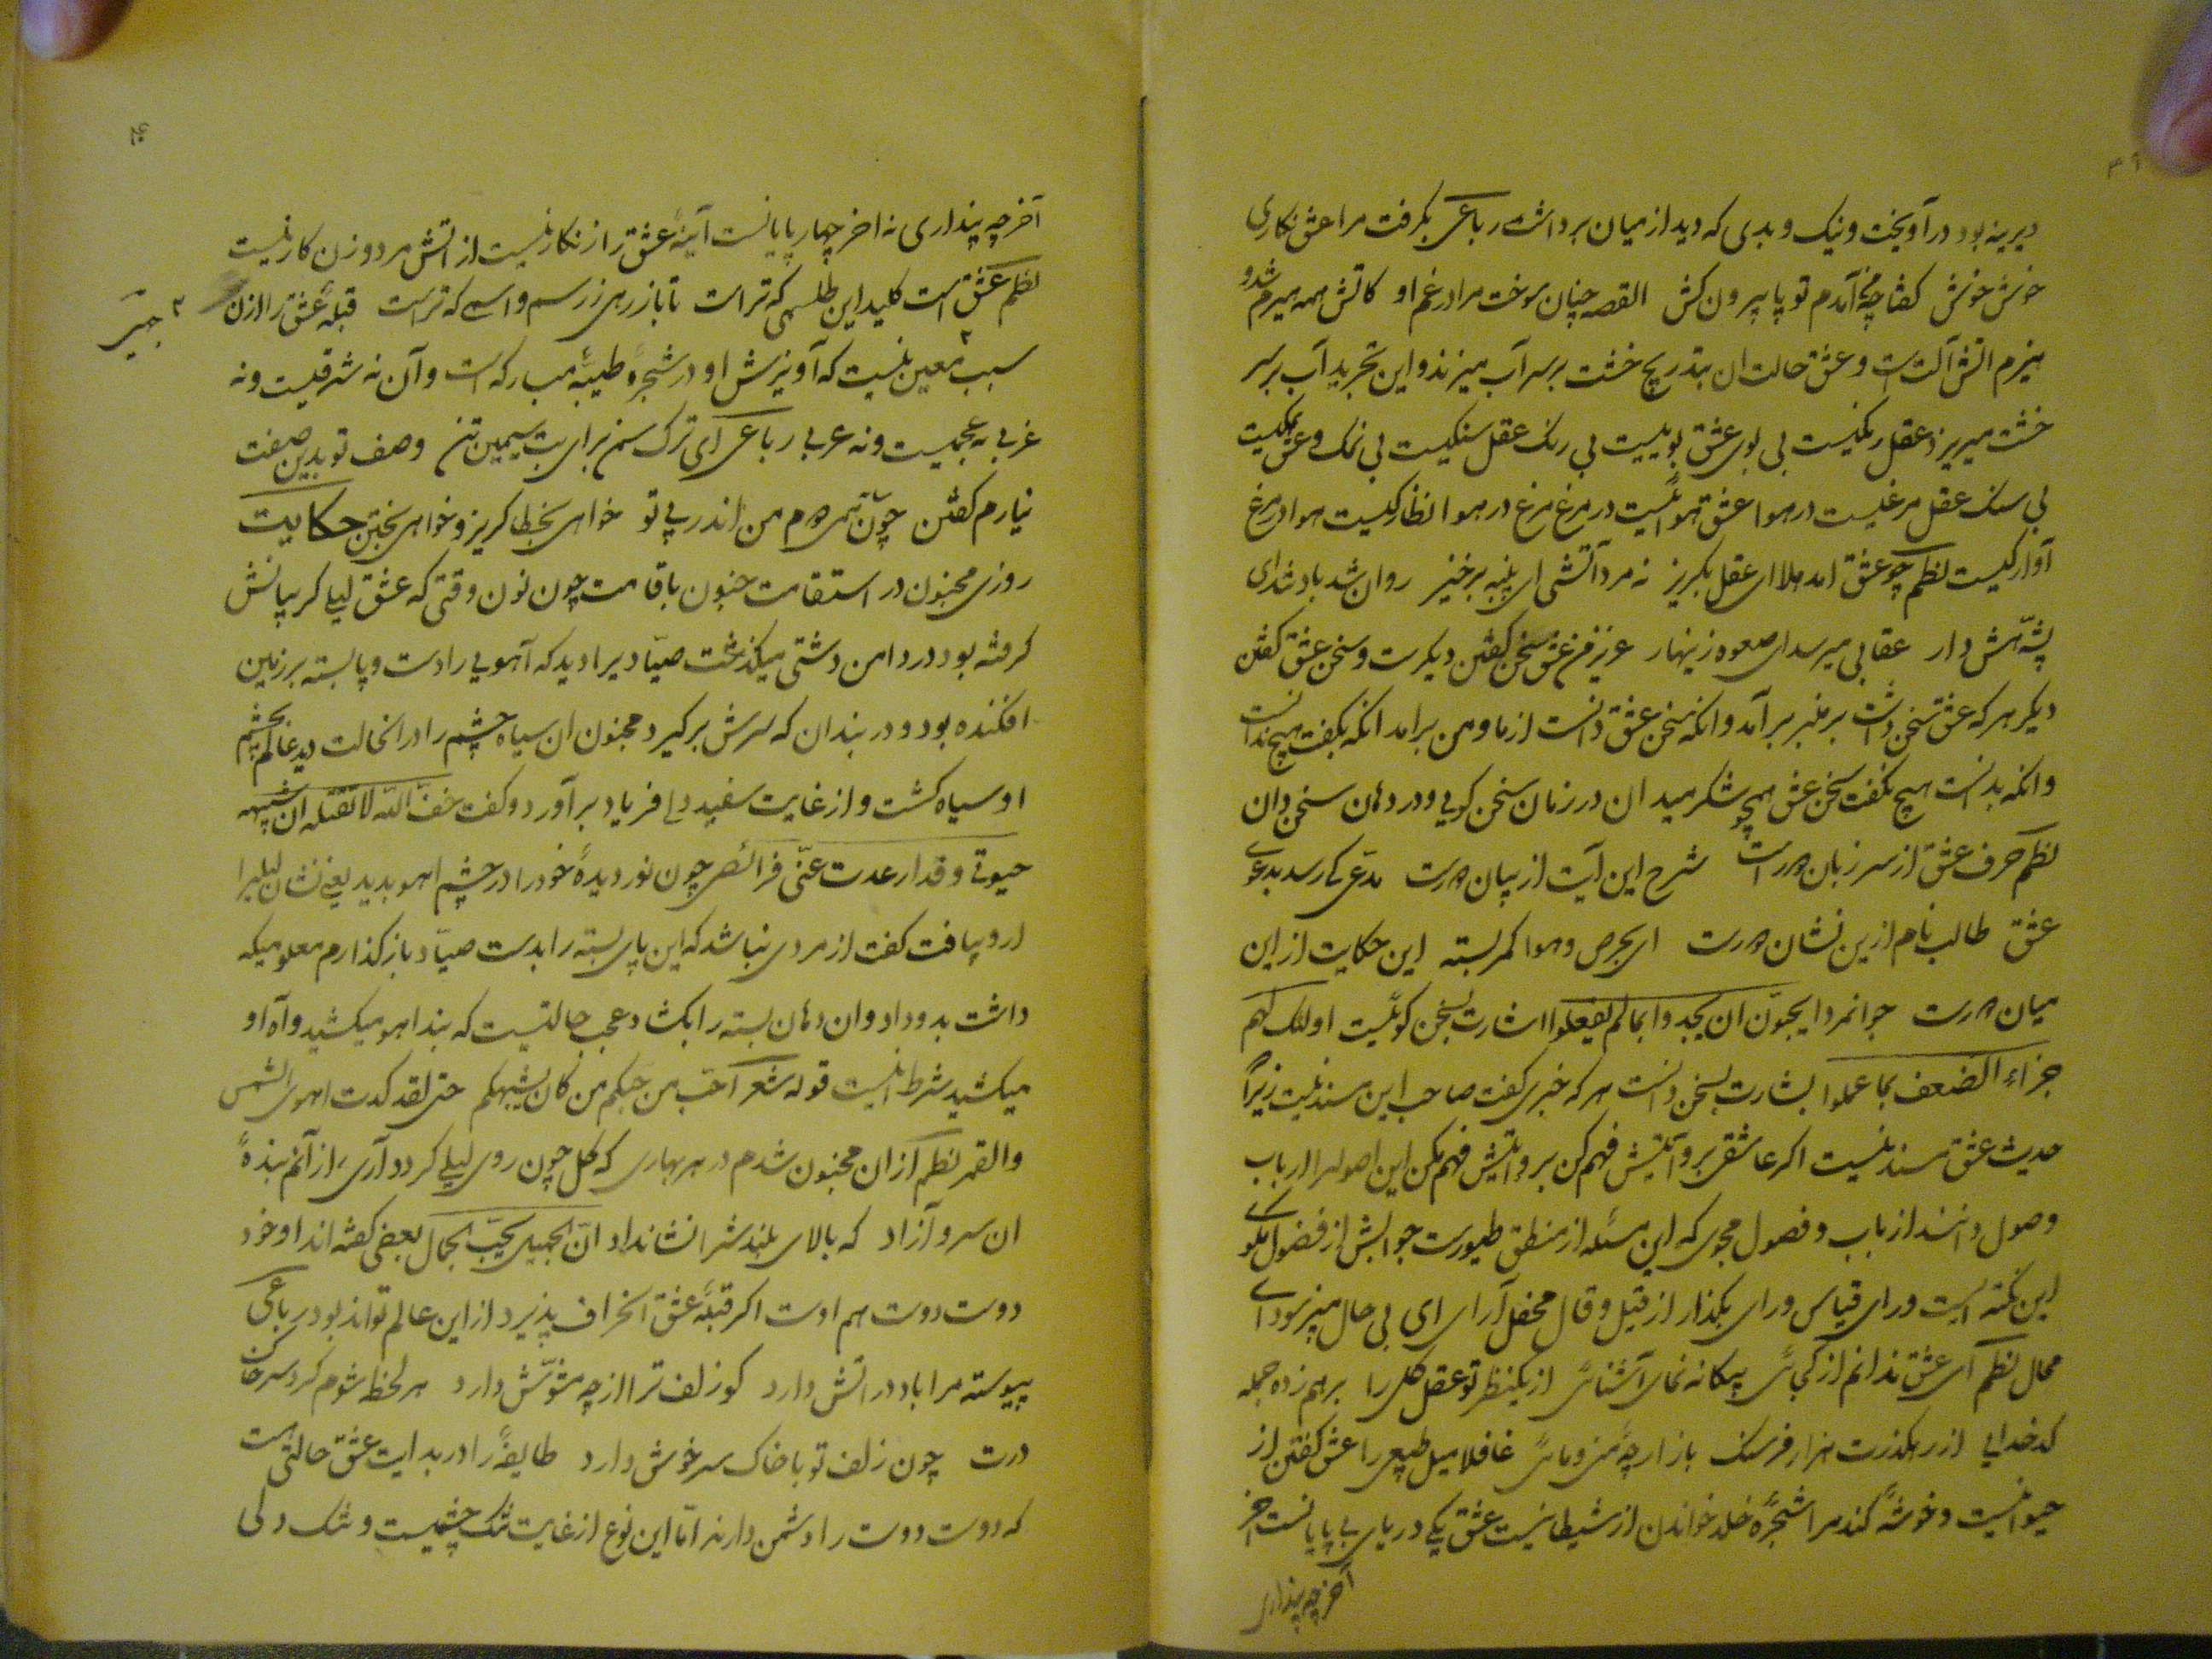 دیرینه بود درآویخت ونیک وبدی که دید از میان برداشت رباعی بکرفت مرا عشق نکاری
خوش خوش کفتا چه آمدم تو پا بیرون کش القصه چنان سوخت مرا در غم او کاتش همه هیزم شد و
هیزم اتش آتش است وعشق حالت ان بتدریج خشت برسر آب میزند واین تجرید آب برسر
خشت میریزد عقل رنکیست بی بوی عشق بوییست بی رنک عقل سنکیست بی نمک وعشق نمکیست
بی سنک عقل مرغیست در هوا عشق هوائیست در مرغ مرغ در هوا نظارکیست هوا در مرغ
آوارکیست نظم چو عشق امد هلا ای عقل بکریز نه مرد آتشی ای پنبه برخیز روان شد باد تند ای
پشه هش دار عقابی میرسد ای صعوه زینهار عزیز من عشق سخن کفتن دیکرست وسخن عشق کفتن
دیکر هرکه عشق سخن داشت بر منبر برآمد وانکه سخن عشق دانست از ما ومن برامد انکه بکفت هیچ ندانست
وانکه بدانست هیچ نکفت سخن عشق همچو شکر میدان در زمان سخن کویی ودر دهان سخن دان
نظم حرف عشق از سر زبان دورست شرح این آیت از بیان دورست مدعی کی رسد بدعوی
عشق طالب نام ازین نشان دورست ای بحرص وهوا کمر بسته این حکایت از این
میان دورست جوانمردا یحبون ان یحمدوا بما لم یفعلوا اشارت بسخن کوئیست اولئک لهم
جزاء الضعف بما عملوا بشارت بسخن دانست هرکه خبری کفت صاحب این مسند نیست زیرا
حدیث عشق مسند نیست اکر عاشقی برو آتش فهم کن برو آتش فهم کن این اصول را ارباب
وصول دانند از باب وفصول مجوی که این مسئله از منطق طیورست جوابش از فضول مکوی
این نکته ایست ورای قیاس ورای بکذار از قیل وقال محفل آرای ای بی حال مپز سودای
محال نظم ای عشق ندانم از کجائی بیکانه نمای آشنائی از یکنظر تو عقل کل را برهم زده جمله
کدخدایی از رهکذرت هزار فرسنک بازارچه منی ومائی غافلا میل طبیعی را عشق کفتن از
حیوانیست وخوشه کندم را شجره خلد خواندن از شیطانیست عشق یکی دریای بی پایانست آخر
آخر چه پنداری
آخر چه پنداری نه اخر چهار پایانست آینه عشق را زنکار نیست از آتش مرد وزن کار نیست
نظم عشق است کلید این طلسمی که تراست تا باز رهی ز رسم واسمی که تراست قبله عشق را ازن
سبب معین نیست که آویزش او در شجره طیبه مبارکه است وآن نه شرقیست ونه
غربی نه عجمیست ونه عربی رباعی ای ترک سمن برای بت سیمین تن وصف تو بدین صفت
نیارم کفتن چون من اندر پی تو خواهی بخطا کریز وخواهی بختن حکایت
روزی مجنون در استقامت جنون باقامت چون نون وقتی که عشق لیلی کریبانش
کرفته بود در دامن دشتی میکذشت صیادیرا دید که آهویی را دست وپا بسته بر زمین
افکنده بود ودر بندان که سرش برکیرد مجنون ان سیاه چشم را در انحالت دید عالم بچشم
او سیاه کشت واز غایت سفید دلی فریاد برآورد وکفت خف الله لا تقتله ان شبیهه
حیوتی وقد ارعدت عنی فرائص چون نور دیده خود را در چشم اهو بدید یعنی نشان لیلی را
ازو بیافت کفت از مردی نباشد که این پای بسته را بدست صیاد باز کذارم معلومیکه
داشت بدو داد وان دهان بسته را بکشاد عجب حالتیست که بند اهو میکشید وآه او
میکشید شرط انیست قوله شعر احب من حبکم من کان یشبهکم حتی لقد کدت اهوی الشمس
والقمر نظم از ان مجنون شدم در هر بهاری که کل چون روی لیلی کردد آری از آنم بنده
ان سرو آزاد که بالای بلندش را نشانداد ان الجمیل یحب الجمال بعضی کفته اند او خود
دوست دوست هم اوست اکر قبله عشق انحراف پذیرد از این عالم تواند بود رباعی
پیوسته مرا باد در آتش دارد کو زلف ترا از چه مشوش دارد هر لحظه شوم کرد سر خاک
درت چون زلف تو با خاک سر خوش دارد طایفه را در بدایت عشق حالتی هست
که دوست دوست را دشمن دارند اما این نوع از غایت تنک چشمیست وتنک دلی